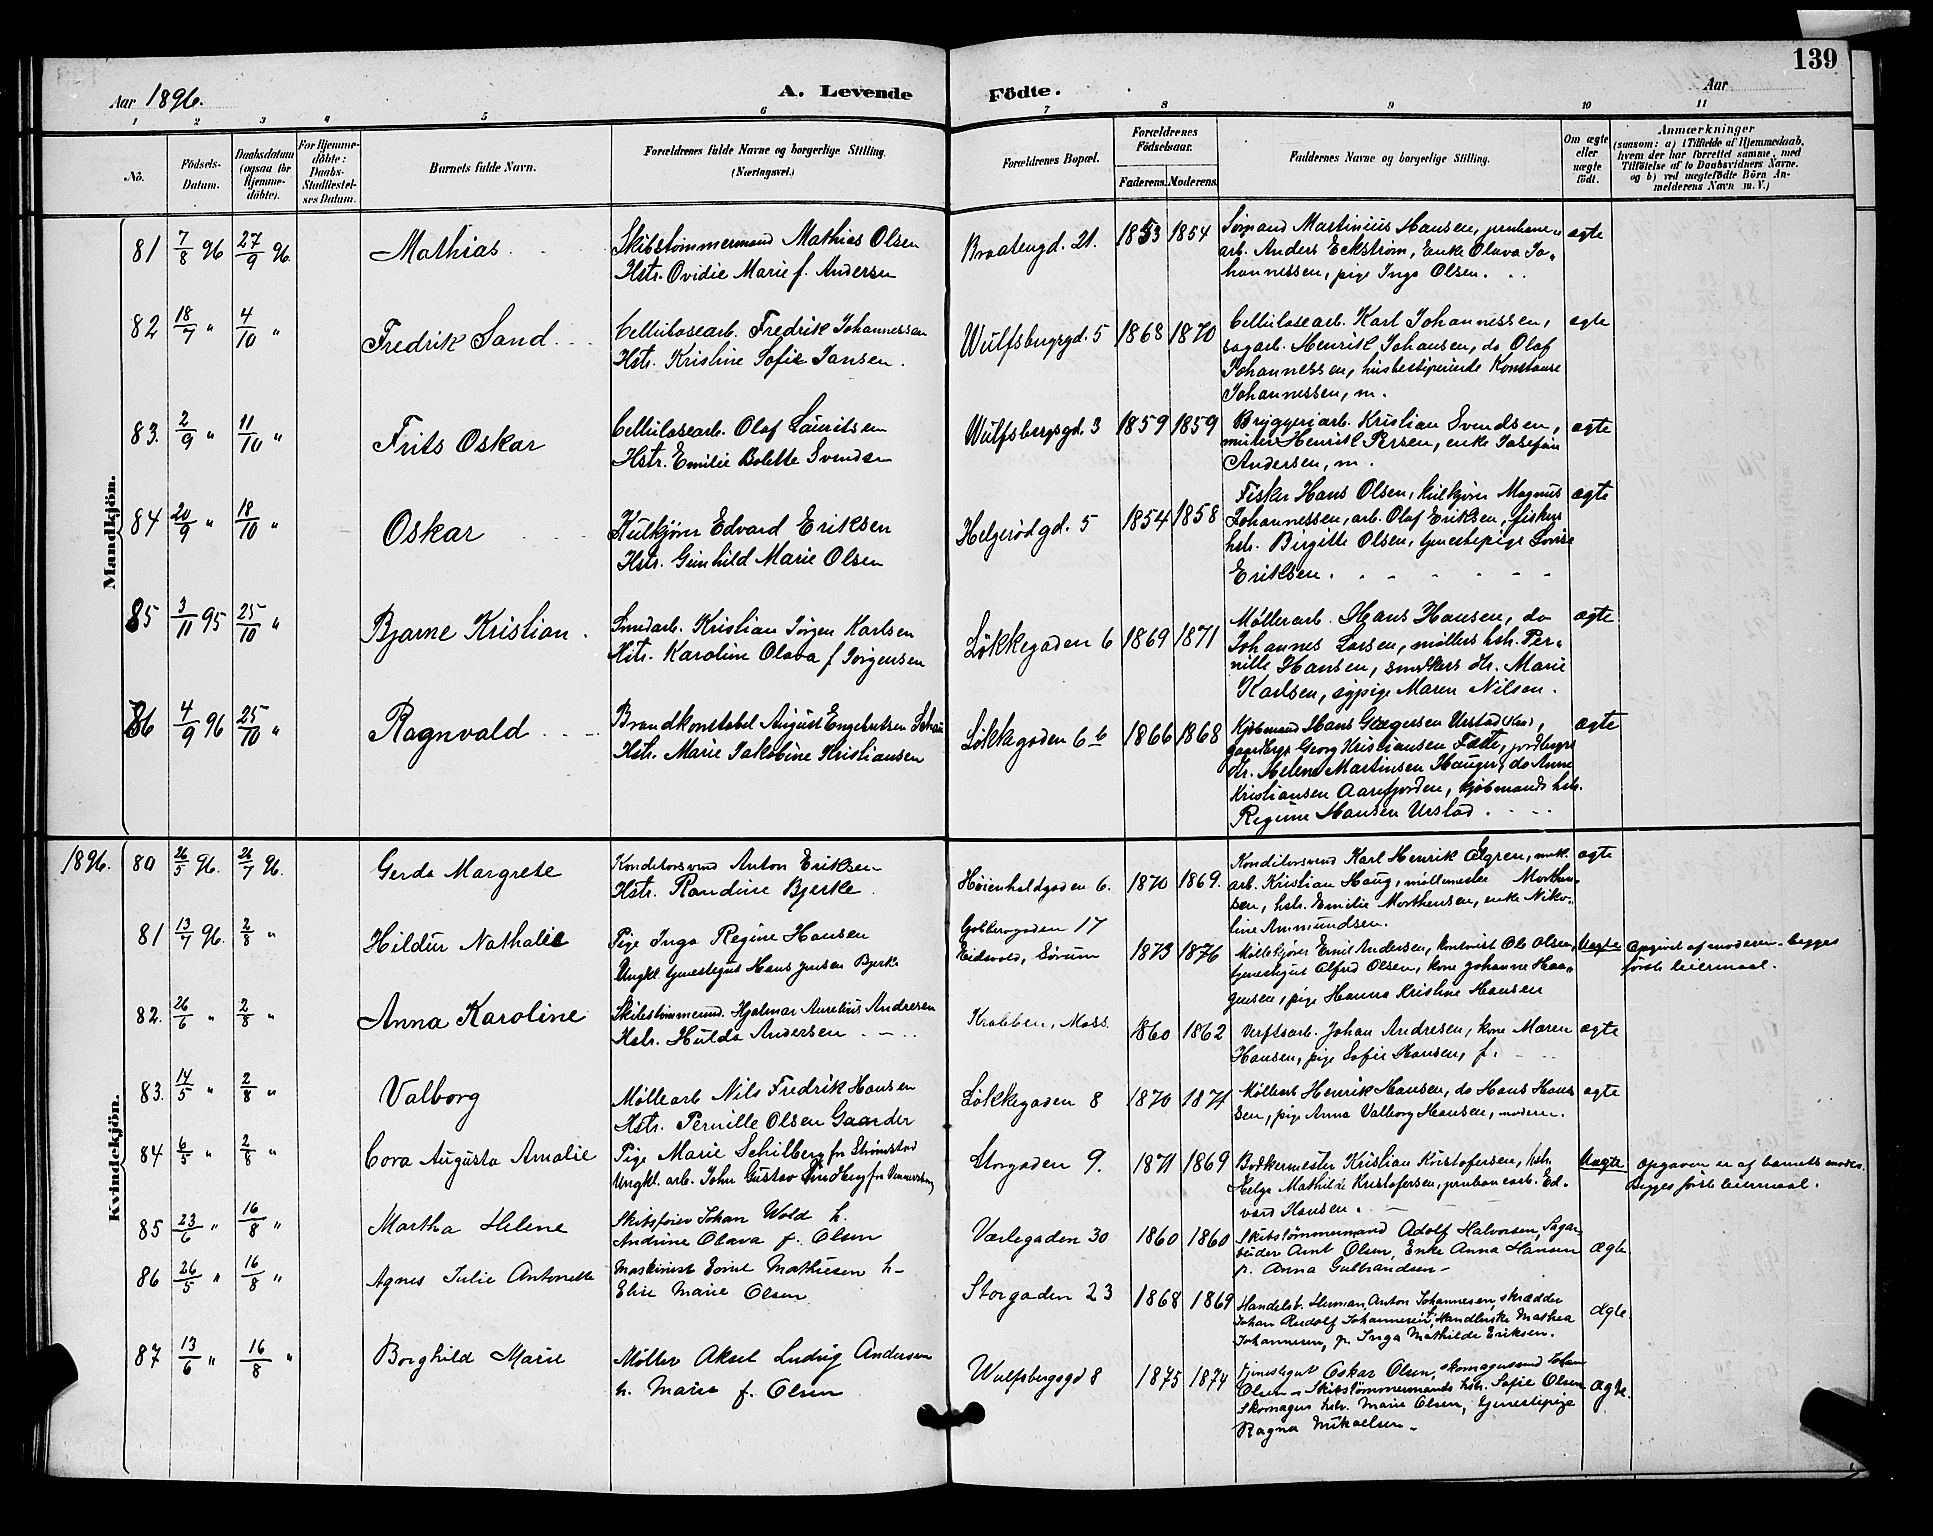 139
Aar 1896.
A. Levende
Födte.
Aar
1 2 3 4 5 6 7 8 9 10 11
No.
Födsels-Datum.
Daabsdatum (ogsaa for Hjemme-döbte).
For Hjemme-döbte: Daabs-Stadfæstel-ses Datum.
Barnets fulde Navn.
Forældrenes fulde Navne og borgerlige Stilling. (Næringsvei.)
Forældrenes Bopæl.
Forældrenes Födselsaar.
Faderens. Moderens.
Faddernes Navne og borgerlige Stilling.
Om ægte eller uægte födt.
Anmærkninger
(saasom: a) i Tilfælde af Hjemmedaab,
hvem der har forrettet samme, med
Tilföielse af to Daabsvidners Navne.
og b) ved uægtefödte Börn An-
melderens Navn m. V.)
Mandkjön.
81 7/8 96 27/9 96. Mathias
Skibstømmermand Mathias Olsen
Hstr. Ovidie Marie f. Andersen
Braatengd. 21. 1853 1854
Sømand Martinius Hansen,
arb. Anders Eckstrøm, Enke Olava Jo-
hannessen, pige Inga Olsen.
ægte
82 18/7 " 4/10 " Fredrik Sand
Cellulosearb. Fredrik Johannessen
Hstr. Kristine Sofie Jansen.
Wulfsbergsgd. 5 1868 1870
Cellulosearb. Karl Johannessen,
sagarb. Henrik Johansen, do Olaf
Johannessen, husbestyrerinde Konstanse
Johannessen, m.
ægte
83. 2/9 " 11/10 " Frits Oskar
Cellulosearb. Olaf Lauritsen
Hstr. Emilie Bolette Svendsen
Wulfsbergsgd. 3 1859 1859
Bryggeriarb. Kristian Svendsen,
murer Henrik Persen, enke Josefine
Andersen, m.
ægte
84 20/9 " 18/10 " Oskar
Kulkjører Edvard Eriksen
Hstr. Gunhild Marie Olsen
Helgerødgd. 5 1854 1858
Fisker Hans Olsen, kulkjører Magnus
Johannessen, arb. Olaf Eriksen, fiskers
hstr. Birgitte Olsen, tjenestepige Lovise
Eriksen.
ægte
85 3/11 95 25/10 " Bjarne Kristian.
Smedarb. Kristian Jørgen Karlsen
Hstr. Karoline Olava f Jørgensen
Løkkegaden 6 1869 1871
Møllerarb. Hans Hansen, do
Johannes Larsen, møllers hstr. Per-
nille Hansen, dtr. Marie
Karlsen, sypige Maren Nilsen.
ægte
86 4/9 96 25/10 " Ragnvald
Brandkonstabel August Engebretsen
Hstr. Marie Jakobine Kristiansen
Løkkegaden 6 b 1866 1868
Kjøbmand Hans Gregersen Urstad,
Georg Kristiansen
dtr. Helene Martinsen Hauger, do Anne
Kristiansen Aarefjorden, kjøbmands hstr.
Regine Hansen Urstad.
ægte
1896.
Kvindekjön.
80 26/5 96. 26/7 96. Gerda Margrete
Konditorsvend Anton Eriksen
Hstr. Randine Bjerke.
Høienhaldgaden 6. 1870 1869.
Konditorsvend Karl Henrik Algren, mek.
arb. Kristian Haug, møllemester Morthen-
sen, hstr. Emilie Morthensen, enke Niko-
line Ammundsen.
ægte
81 13/7 96. 2/8 " Hildur Nathalie
Pige Inga Regine Hansen
Ungkl. tjenestegut Hans Jensen Bjerke
17
Eidsvold, Sørum 1873 1876
Møllekjører Emil Andersen, kontorist Ole Olsen,
tjenestegut Alfred Olsen, kone Johanne Haa-
gensen, pige Hanna Kristine Hansen
Uægte
Opgivet af moderen - begges
første leiermaal.
82. 26/6 " 2/8 " Anna Karoline
Skibstømmermd. Hjalmar Aurelius Andresen
Hstr. Hulda Andersen
Krabben, Moss. 1860 1862
Verftsarb. Johan Andresen, kone Maren
Hansen, pige Sofie Hansen, f.
ægte
83. 14/5 " 2/8 " Valborg
Møllearb Nils Fredrik Hansen
Hstr. Pernille Olsen Gaarder
Løkkegaden 8 1870 1871
Møllearb Henrik Hansen, do Hans Han-
sen, pige Anna Valborg Hansen, moderen.
ægte
84 6/5 " 2/8 " Cora Augusta Amalie
Pige Marie Schilberg fra Strømstad
Ungkl. arb. John Gustav Lindberg fra
Storgaden 9. 1871 1869
Bødkermester Kristian Kristofersen, hstr.
Helga Mathilde Kristofersen, Ed-
vard Hansen.
Uægte
Opgaven er af barnets moder.
Begges første leiermaal.
85 23/6 " 16/8 " Martha Helene
Skibsfører Johan Wold h.
Andrine Olava f. Olsen
Værlegaden 30 1860 1860
Skibstømmermand Adolf Halvorsen, Sagar-
beider Arnt Olsen, Enke Anna Hansen
p. Anna Gulbrandsen -
Ægte
86 26/5 " 16/8 " Agnes Julie Antonette
Maskinist Emil Mathiesen h-
Elise Marie Olsen
Storgaden 23 1868 1869
Handelsb. Herman Anton Johannesen, skrædder
Johan Rudolf Johannesen, Handlerske Mathea
Johannesen, p. Inga Mathilde Eriksen.
Ægte.
87 13/6 " 16/8 " Borghild Marie
Møller Aksel Ludvig Andersen
h. Marie f. Olsen
Wulfsbergsgd 8 1875 1874
Tjenestegut Oskar Olsen, skomagersvend Johan
Olsen - Skibstømmermands hstr. Sofie Olsen
Skomagers hstr. Marie Olsen, tjenestepige
Ragna Mikaelsen -
Ægte.